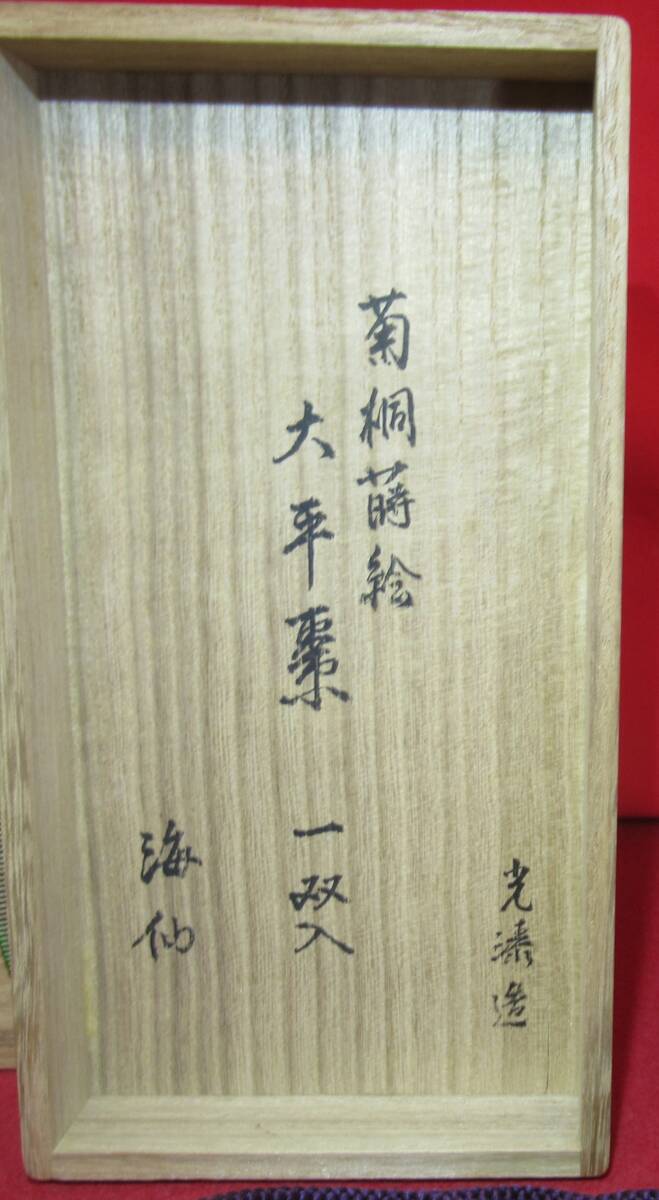 光漆造
菊桐蒔絵
大平棗 一双入
海仙